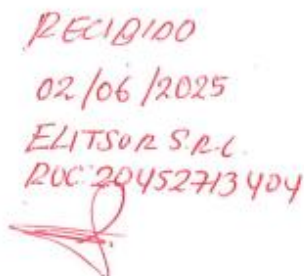 RECIBIDO
02/06/2025
ELITSUR S.R.L.
RUC: 20452713404